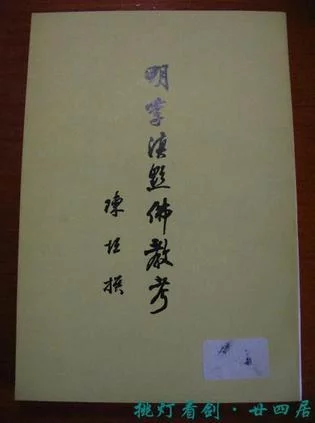 明季滇黔佛教考
陳垣撰
挑灯看剑·廿四居